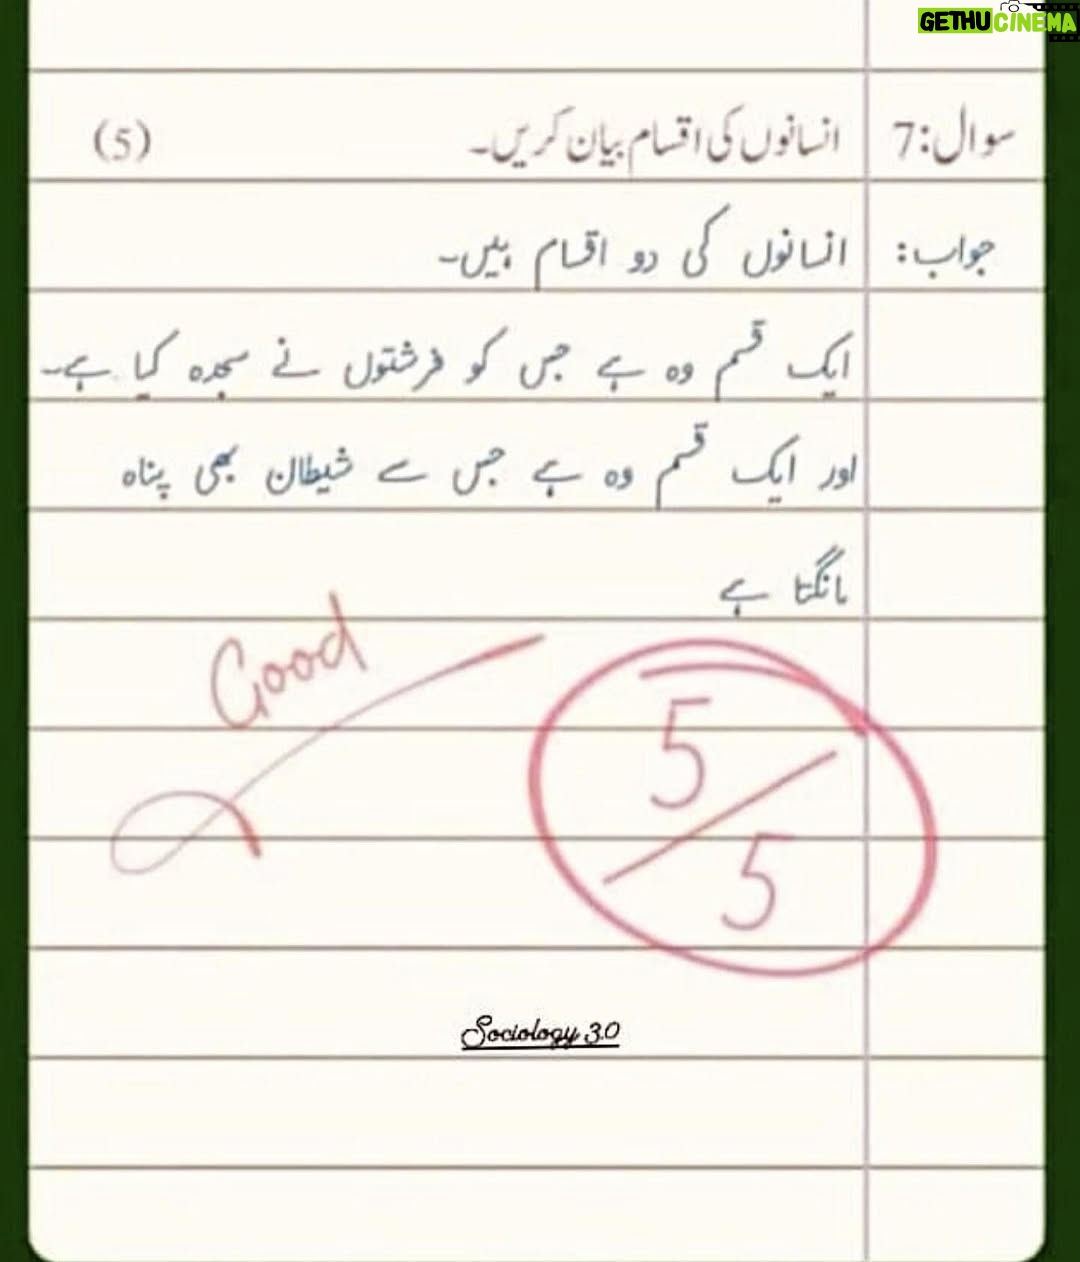 GETHUCINEMA
سوال:7 انسانوں کی اقسام بیان کریں۔ (5)
جواب: انسانوں کی دو اقسام ہیں۔
ایک قسم وہ ہے جس کو فرشتوں نے سجدہ کیا ہے۔
اور ایک قسم وہ ہے جس سے شیطان بھی پناہ
مانگتا ہے
Good
5/5
Sociology 3.0